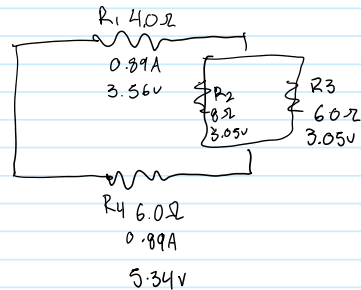 R1 4.0Ω
0.89A
3.56v
R2
8Ω
3.05v
R3
60Ω
3.05v
R4 6.0Ω
0.89A
5.34v